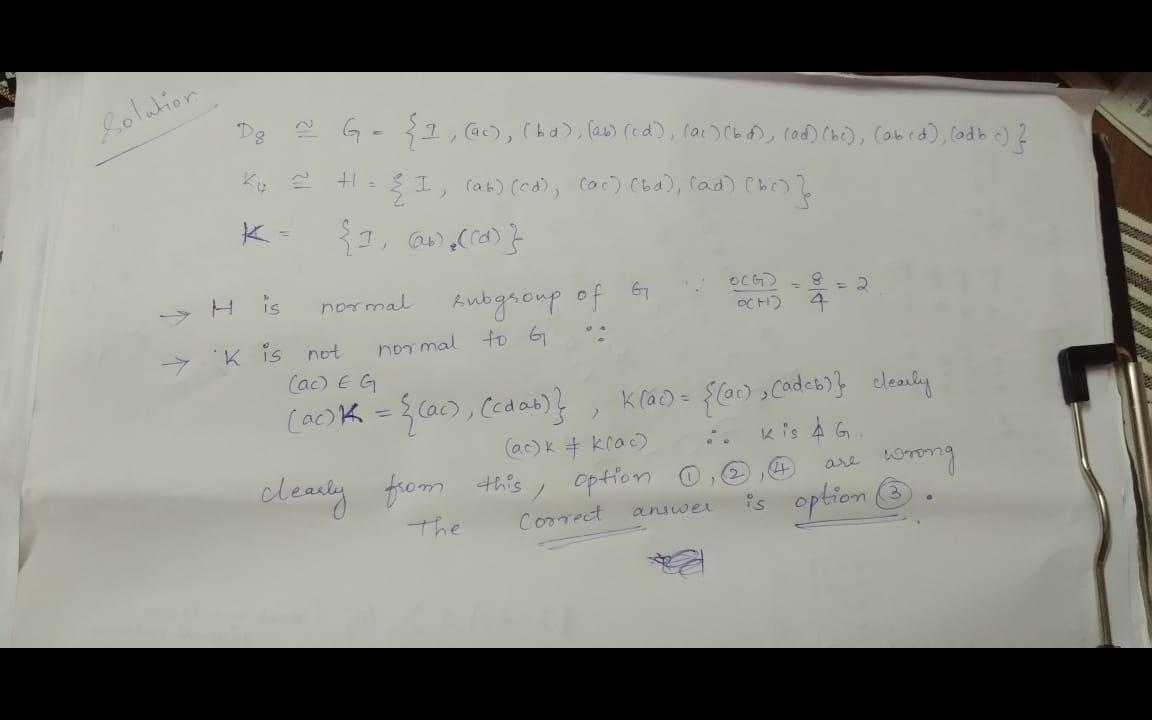 Solution
D8 ≅ G = {I, (ac), (bd), (ab)(cd), (ac)(bd), (ad)(bc), (abcd), (adbc)}
K4 ≅ H = {I, (ab)(cd), (ac)(bd), (ad)(bc)}
K = {I, (ab).(cd)}
→ H is normal subgroup of G ∵ o(G)/o(H) = 8/4 = 2
→ K is not normal to G ∵
(ac) ∈ G
(ac)K = {(ac), (cdab)}, K(ac) = {(ac), (adcb)} clearly
(ac)K ≠ K(ac) ∴ K is ⋬ G.
clearly from this, option ①, ②, ④ are wrong
The correct answer is option ③.